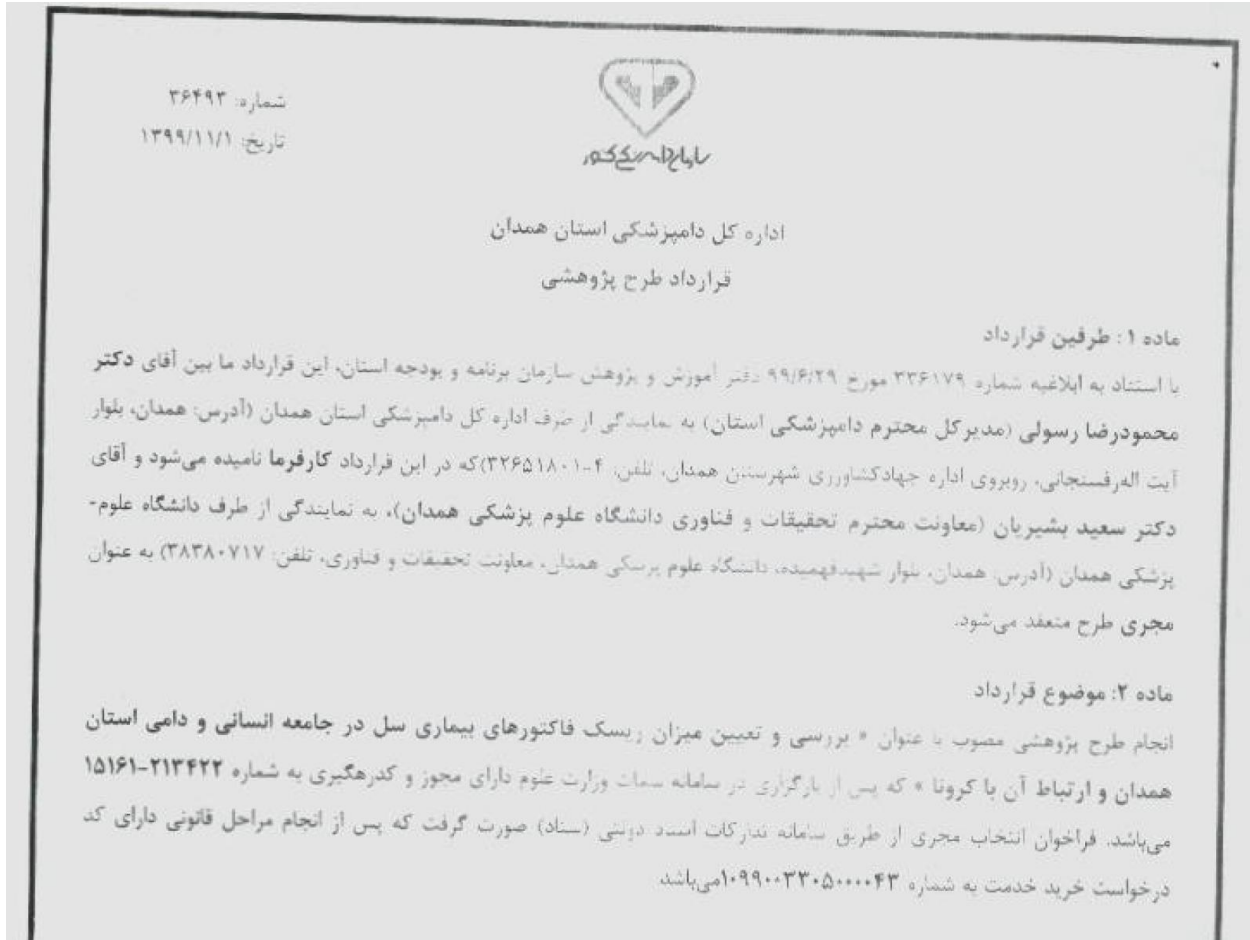 شماره: ۳۶۴۹۳
تاریخ: ۱۳۹۹/۱۱/۱
سازمان دامپزشکی کشور
اداره کل دامپزشکی استان همدان
قرارداد طرح پژوهشی
ماده ۱ : طرفین قرارداد
با استناد به ابلاغیه شماره ۳۳۶۱۷۹ مورخ ۹۹/۶/۲۹ دفتر آموزش و پژوهش سازمان برنامه و بودجه استان، این قرارداد ما بین آقای دکتر
محمودرضا رسولی (مدیرکل محترم دامپزشکی استان) به نمایندگی از طرف اداره کل دامپزشکی استان همدان (آدرس: همدان، بلوار
آیت اله‌رفسنجانی، روبروی اداره جهادکشاورزی شهرستان همدان، تلفن: ۴-۳۲۶۵۱۸۰۱)که در این قرارداد کارفرما نامیده می‌شود و آقای
دکتر سعید بشیریان (معاونت محترم تحقیقات و فناوری دانشگاه علوم پزشکی همدان)، به نمایندگی از طرف دانشگاه علوم-
پزشکی همدان (آدرس: همدان، بلوار شهیدفهمیده، دانشگاه علوم پزشکی همدان، معاونت تحقیقات و فناوری، تلفن: ۳۸۳۸۰۷۱۷) به عنوان
مجری طرح منعقد می‌شود.
ماده ۲: موضوع قرارداد
انجام طرح پژوهشی مصوب با عنوان « بررسی و تعیین میزان ریسک فاکتورهای بیماری سل در جامعه انسانی و دامی استان
همدان و ارتباط آن با کرونا » که پس از بارگزاری در سامانه سمات وزارت علوم دارای مجوز و کدرهگیری به شماره ۲۱۳۴۲۲-۱۵۱۶۱
می‌باشد. فراخوان انتخاب مجری از طریق سامانه تدارکات دولتی (ستاد) صورت گرفت که پس از انجام مراحل قانونی دارای کد
درخواست خرید خدمت به شماره ۱۰۹۹۰۰۳۳۰۵۰۰۰۰۴۳می‌باشد